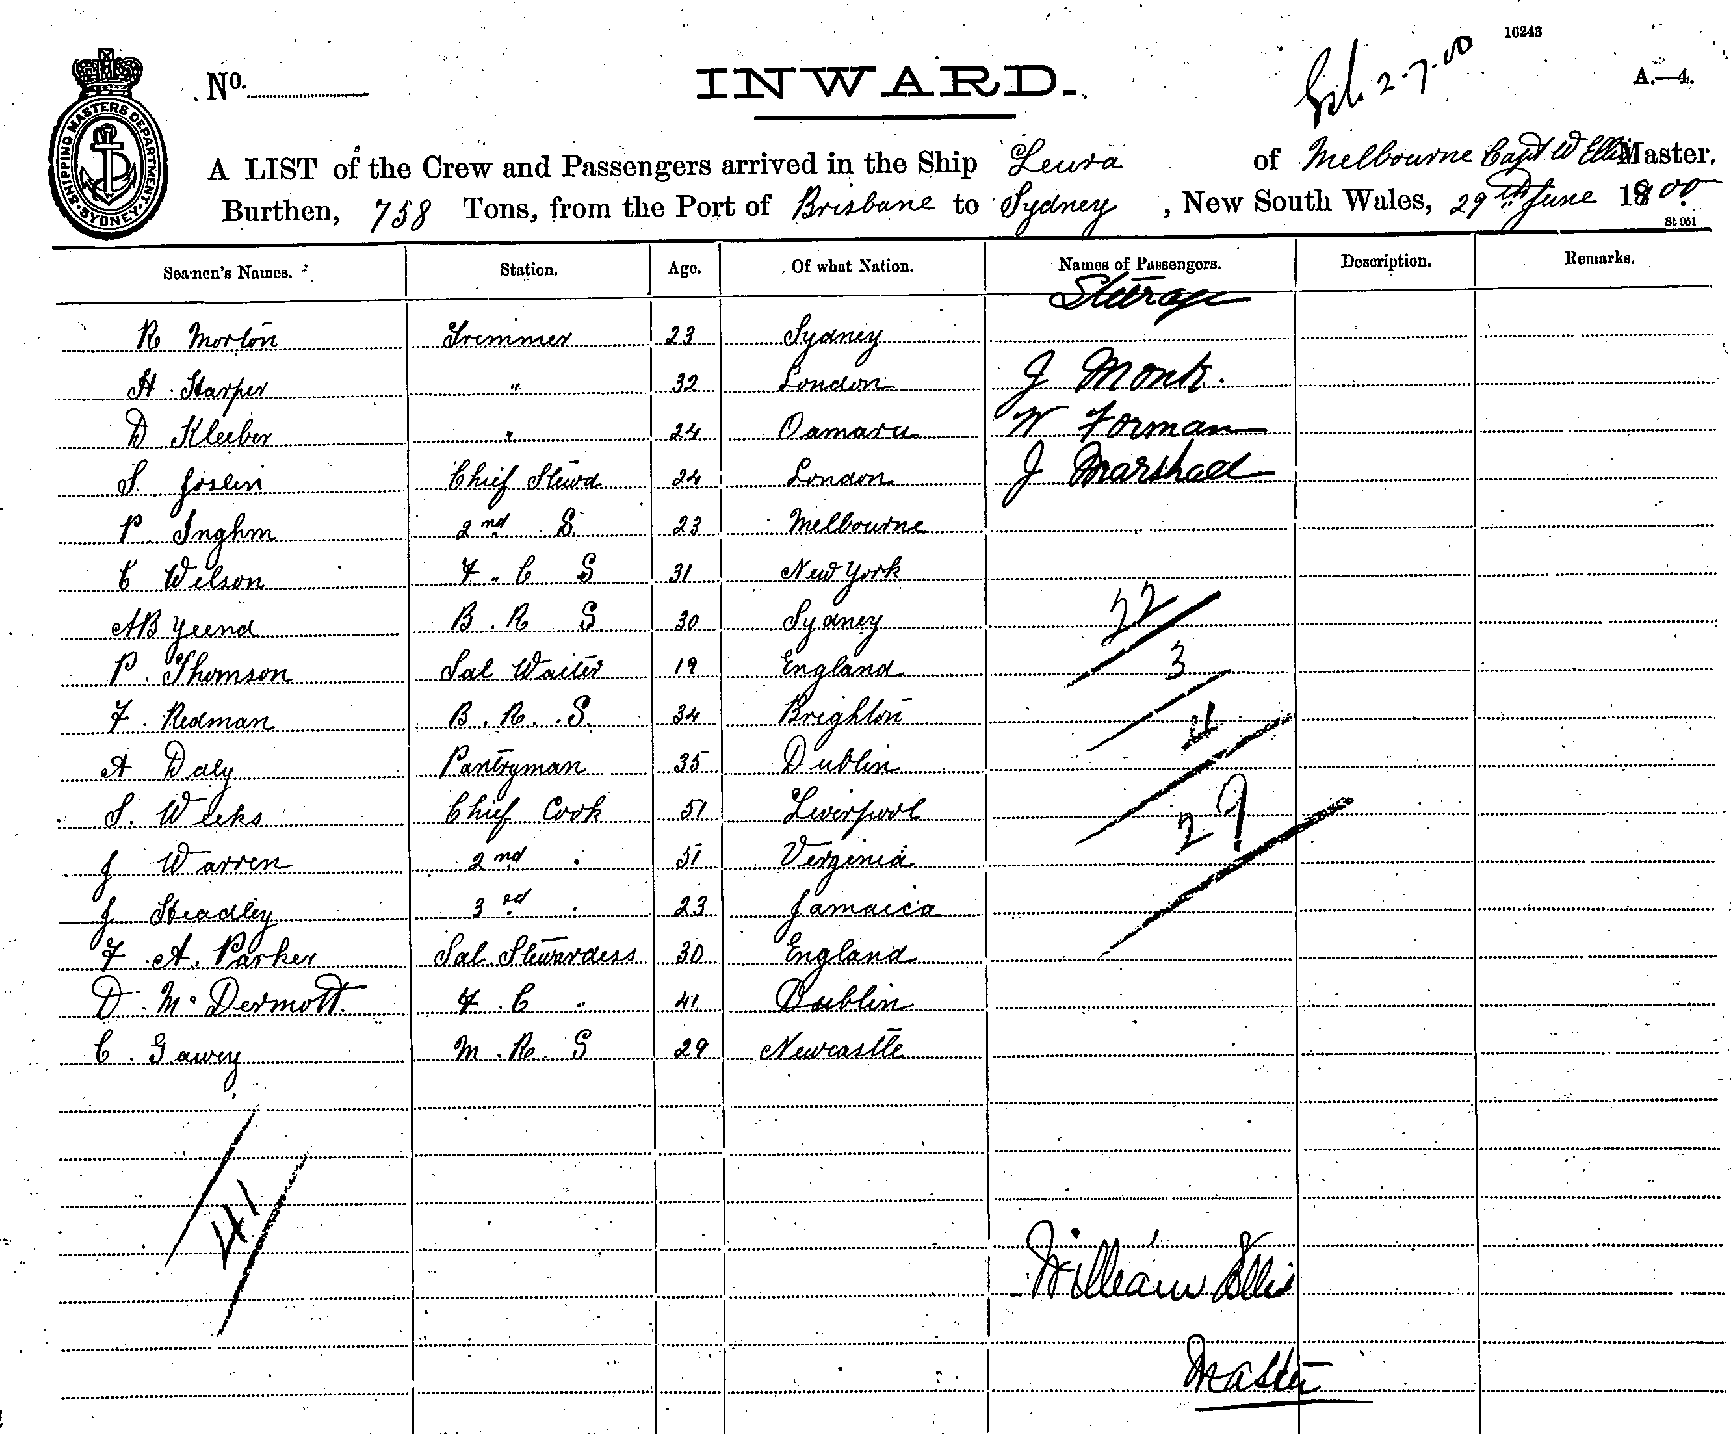 10243
No. INWARD. 2-7-00 A.—4.
SHIPPING MASTERS DEPARTMENT SYDNEY
A LIST of the Crew and Passengers arrived in the Ship Leura of Melbourne Capt W Ellis Master.
Burthen, 758 Tons, from the Port of Brisbane to Sydney, New South Wales, 29th June 1900
St 951
Seamen's Names. Station. Age. Of what Nation. Names of Passengers. Description. Remarks.
Steerage
R Morton Trimmer 23 Sydney
H. Harper " 32 London J Monk.
D Kleiber " 24 Oamaru W Forman
S Joslin Chief Stewd 24 London J Marshall
P. Inghm 2nd S. 23 Melbourne
C Welson F. C S 31 New York
AB Yeend B. R S 30 Sydney 22
P. Thomson Sal Waiter 19 England 3
F. Redman B. R. S. 34 Brighton 4
A Daly Pantryman 35 Dublin
S. Weeks Chief Cook 51 Liverpool 29
J Warren 2nd " 51 Verginia
J Headley 3rd " 23 Jamaica
F. A. Parker Sal Stewardess 30 England
D. McDermott. F. C " 41 Dublin
C. Gawey M. R. S 29 Newcastle
41
William Ellis
Master